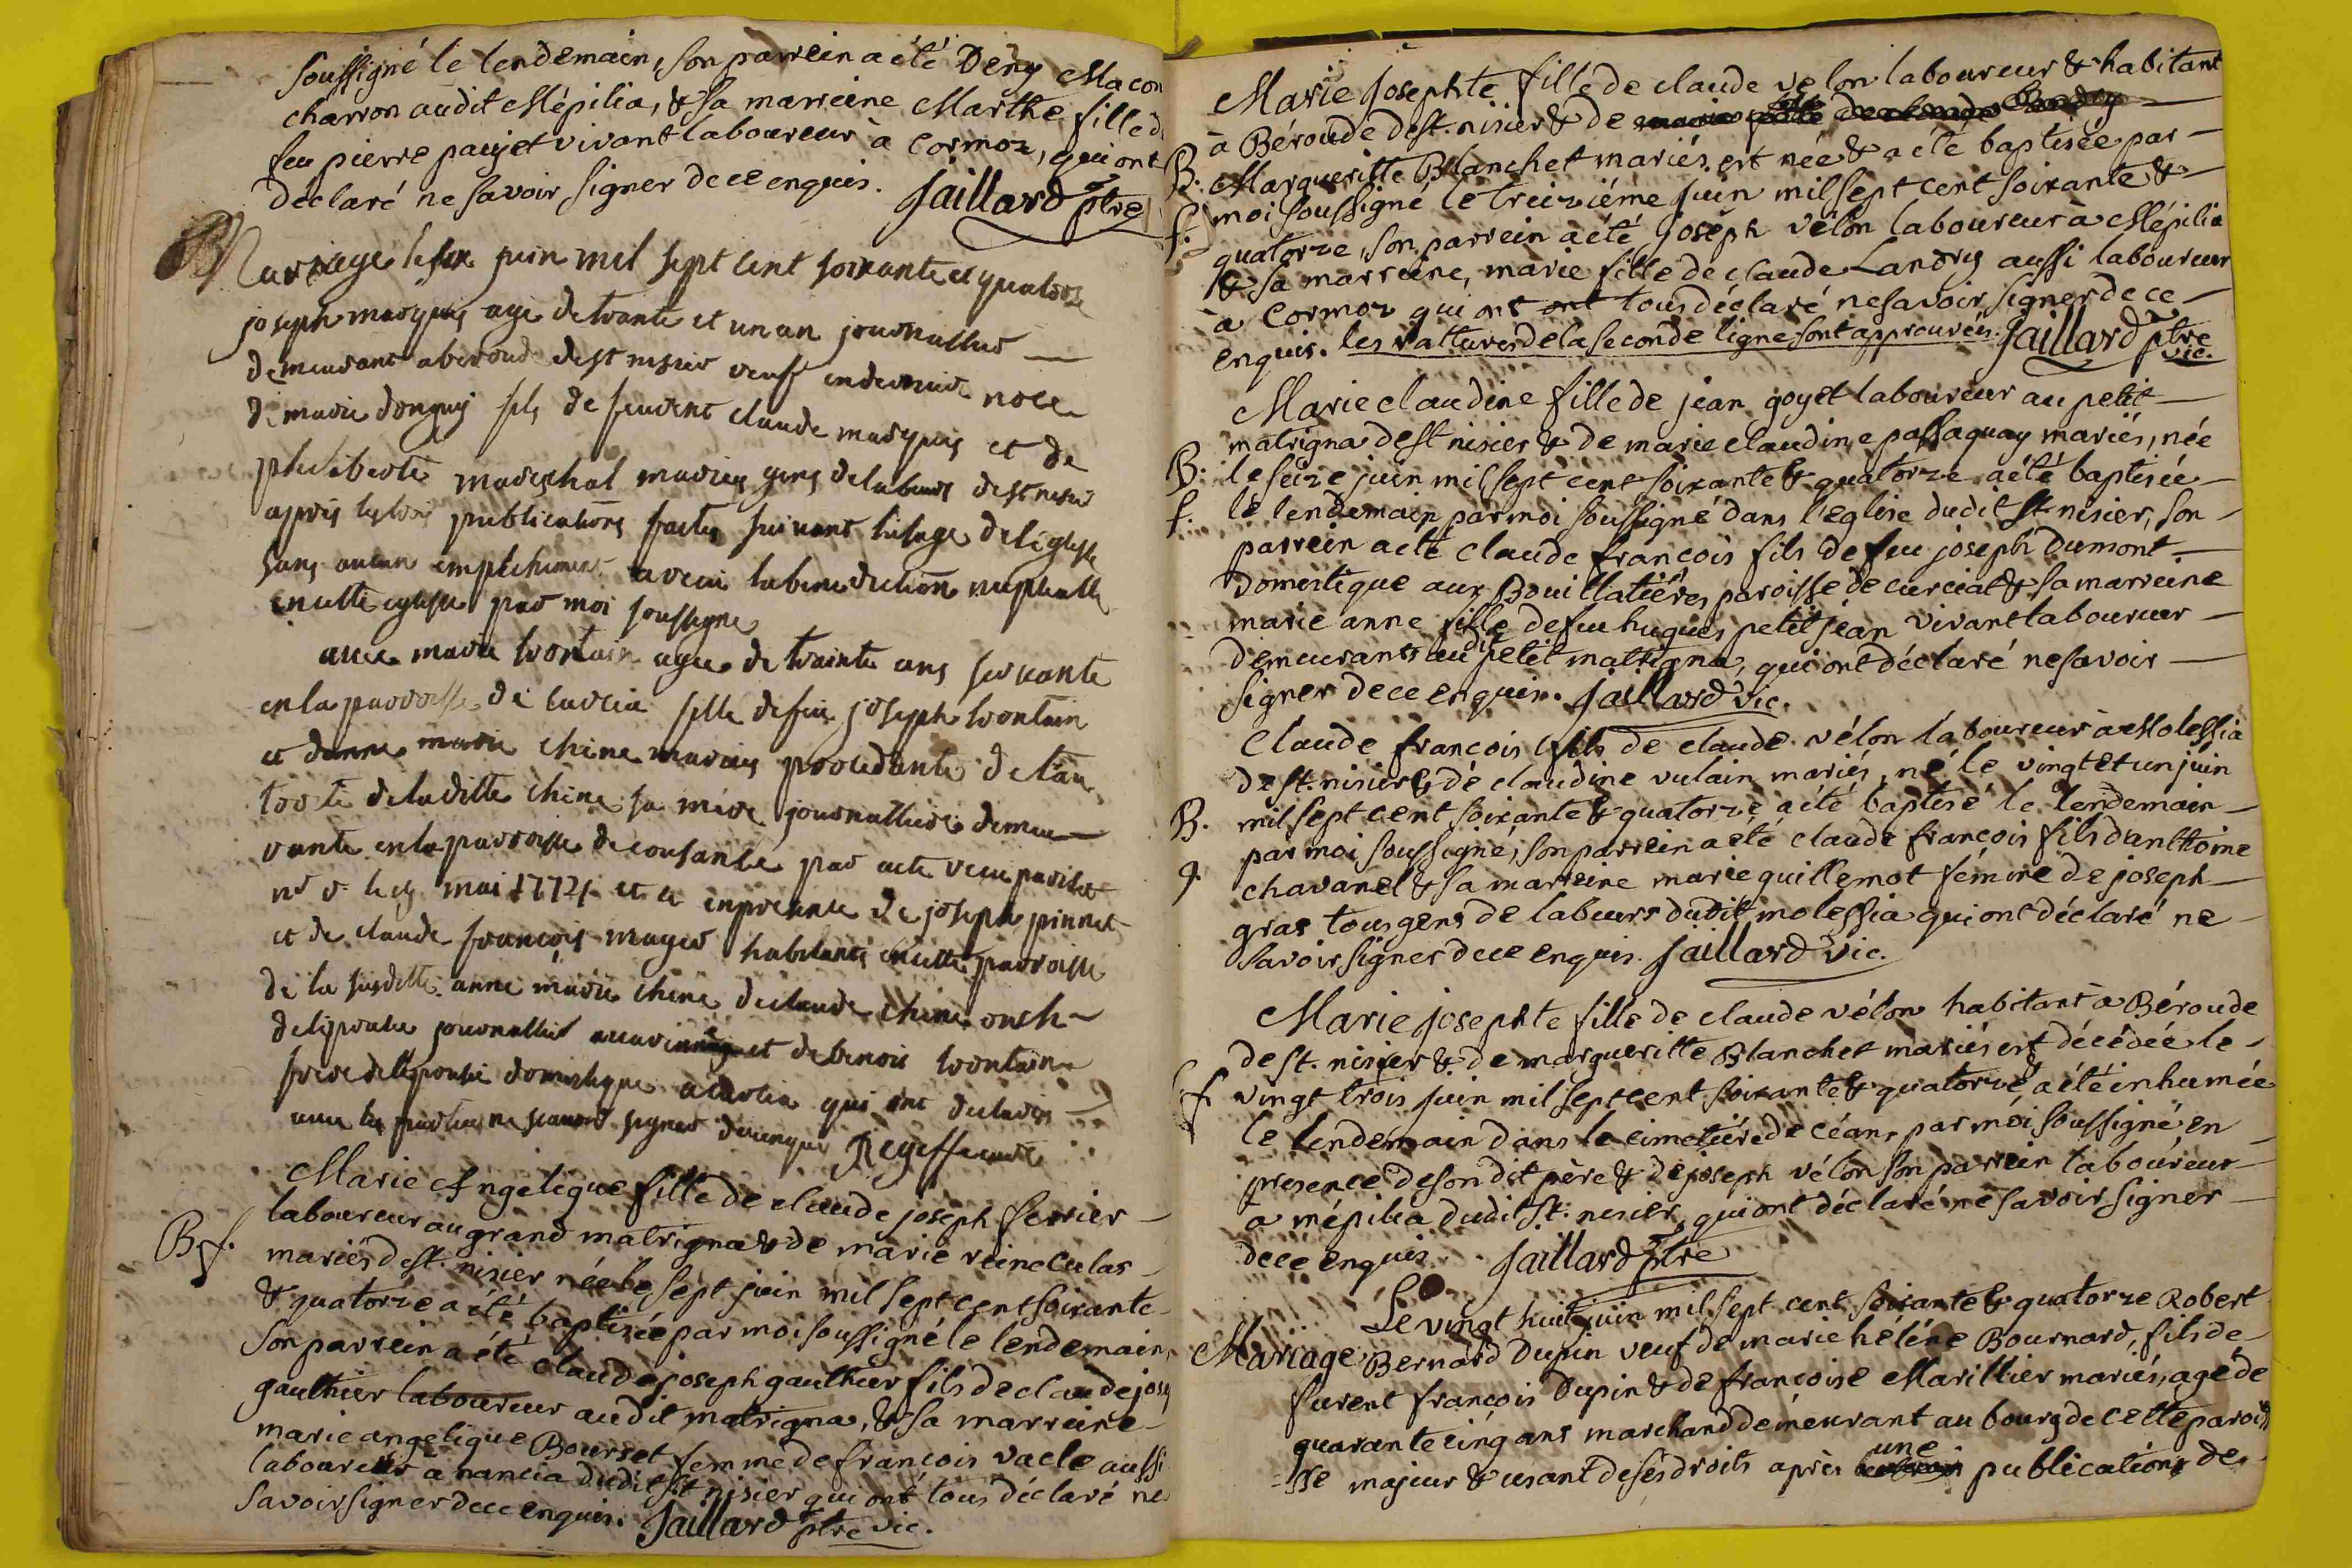 soussigné le lendemain, son parrein a été Deny Macon
charron audit Mépilia, & sa marreine Marthe fille d
feu pierre paujet vivant laboureur à Cormoz, qui ont
déclaré ne savoir signer de ce enquis. Jaillard ptre
Mariage le six juin mil sept cent soixante et quatorze
joseph marquis agé de trante et un an journallier
demeurant a beroude de st nisier veuf en derniere noce
de marie donguy fils de feurent claude marquis et de
philiberte mareschal mariés gens de labeurs de st nisier
après les trois publications faites suivant l'usage de l'eglise
sans aucun empechement a receu la benediction nuptialle
en cette eglise par moi soussigné
avec marie trontain agée de trainte ans servante
en la parroisse de curcia fille de feu joseph trontain
et d'anne marie chêne mariés procedante de l'au
torité de laditte chêne sa mère journalliere demeu
rante en la parroisse de cousance par acte receu
mai 1774 et ce en presence de joseph pinnet
et de claude françois mayer habitants en cette parroisse
de la susditte anne marie chêne de claude chêne oncle
de l'epouse journallier et de benoit trontain
frere de l'epouse domestique qui ont declarés
avec les parties ne scavoir signer de ce enquis
Marie Angelique fille de claude joseph ferrier
laboureur au grand matrigna & de marie reine Culas
B f. mariés de st. nisier née le sept juin mil sept cent soixante
& quatorze a été baptisée par moi soussigné le lendemain,
son parrein a été claude joseph gauthier fils de claude jose
gauthier laboureur audit matrigna, & sa marreine
marie angelique Bourset femme de francois vacle aussi
laboureur à nancia dudit st nisier qui ont tous déclaré ne
savoir signer de ce enquis. Jaillard ptre vic.
Marie Josephte fille de claude vélon laboureur & habitant
à Béroude de st. nisier & de
B. Margueritte Blanchet mariés, est née & a été baptisée par
f. moi soussigné le treizième juin mil sept cent soixante &
quatorze, son parrein a été Joseph vélon laboureur à Mépilia
& sa marreine, marie fille de claude Landry aussi laboureur
à Cormoz qui ont ont tous déclaré ne savoir signer de ce
enquis. les rattures de la seconde ligne sont approuvées. Jaillard ptre
vic.
Marie claudine fille de jean goyet laboureur au petit
matrigna de st nisier & de marie claudine passaquay mariés, née
B. le seize juin mil sept cent soixante & quatorze a été baptisée
f. le lendemain par moi soussigné dans l'eglise dudit st nisier, son
parrein a été claude francois fils de feu joseph Dumont
Domestique aux Bouillatières paroisse de curciat & sa marreine
marie anne fille de feu hugues petitjean vivant laboureur
demeurants audit petit matrigna, qui ont déclaré ne savoir
signer de ce enquis. Jaillard vic.
Claude francois fils de claude vélon laboureur à Molessia
de st. nisier & de claudine vulain mariés, né le vingt et un juin
B. mil sept cent soixante & quatorze a été baptisé le lendemain
par moi soussigné, son parrein a été claude francois fils d'anthoine
g. chavanel & sa marreine marie guillemot fémme de joseph
gras tous gens de labeurs dudit molessia qui ont déclaré ne
savoir signer de ce enquis. Jaillard vic.
Marie josephte fille de claude vélon habitant à Béroude
de st. nisier & de margueritte Blanchet mariés est décédée le
f vingt trois juin mil sept cent soixante & quatorze, a été inhumée
le lendemain dans le cimetière de céans par moi soussigné en
presence de son dit père & de joseph vélon son parrein laboureur
à mépilia dudit st. nisier, qui ont déclaré ne savoir signer
de ce enquis. Jaillard ptre
Le vingt huit juin mil sept cent soixante & quatorze Robert
Mariage Bernard Dupin veuf de marie hélène Bournard, fils de
furent françois Dupin & de françoise Marillier mariés, agé de
quarante cinq ans marchand demeurant au bourg de cette parois
sse majeur & usant de ses droits après une publications de